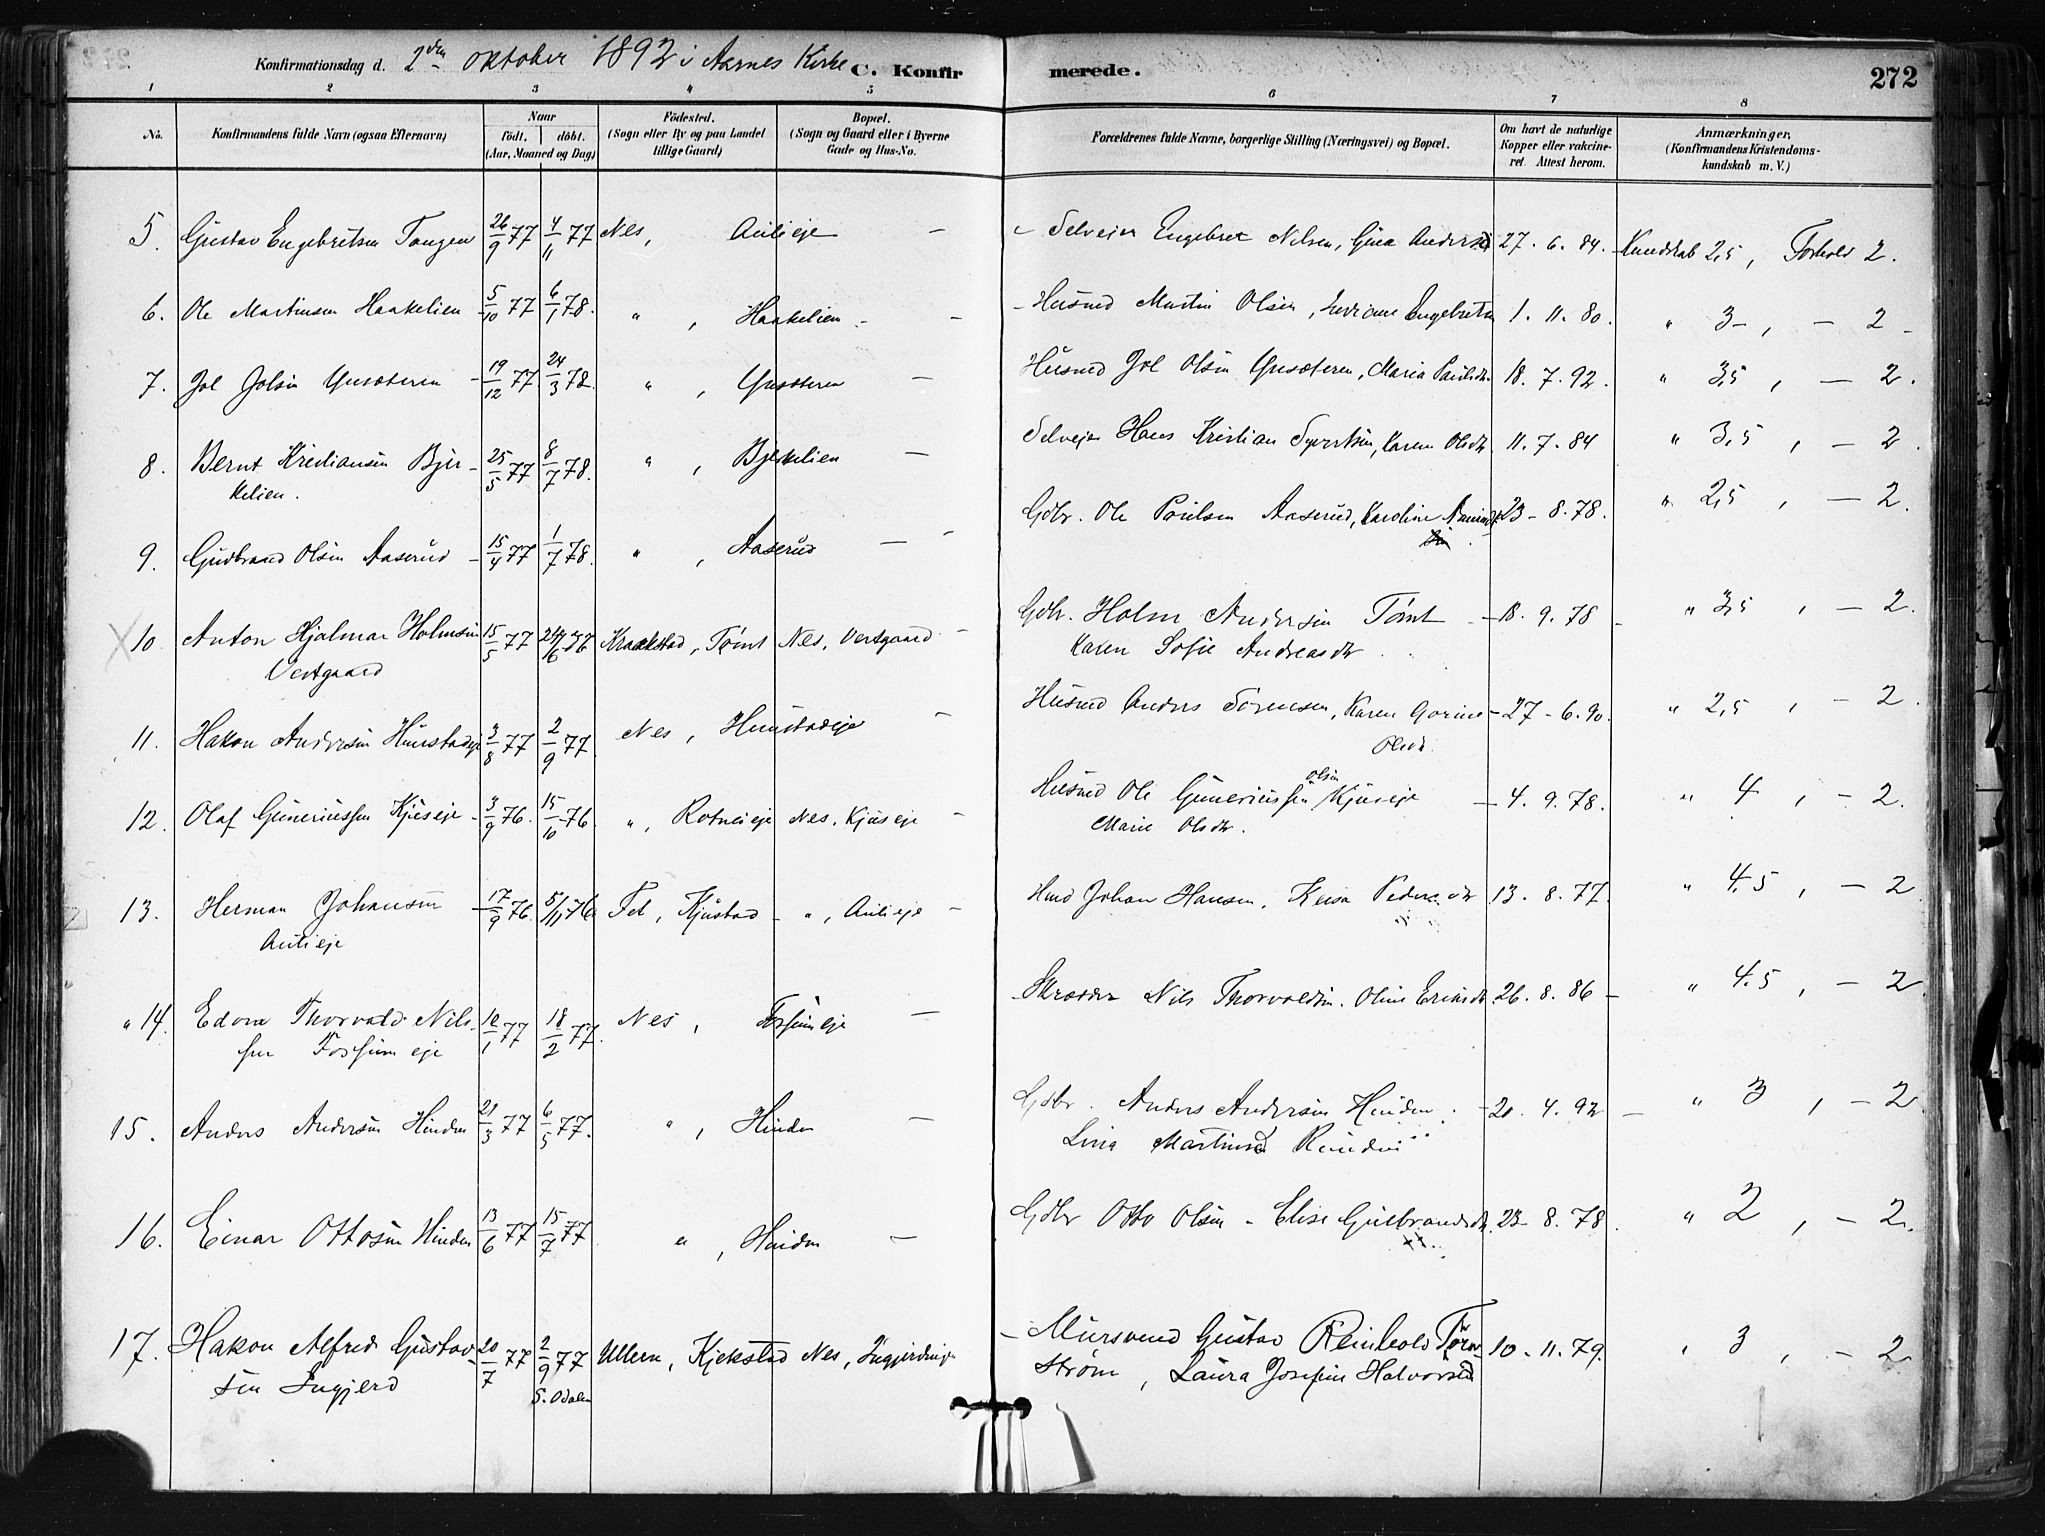 Konfirmationsdag d. 2den oktober 1892 i Aarnes Kirke C. Konfirmerede. 272
1 2 3 4 5 6 7 8
No. Konfirmandens fulde Navn (ogsaa Efternavn) Naar født. døbt. (Aar, Maaned og Dag) Fødested. (Sogn eller By og paa Landet tillige Gaard) Bopæl. (Sogn og Gaard eller i Byerne Gade og Hus-No. Forældrenes fulde Navne, borgerlige Stilling (Næringsvei) og Bopæl. Om havt de naturlige Kopper eller vakcineret. Attest herom. Anmærkninger, (Konfirmandens Kristendomskundskab m. V.)
5. Gustav Engebretsen Tangen 26/9 77 4/11 77 Nes, Aulieje — Selveier Engebret Nilsen, Gina Andersd 27. 6. 84. Kundskab 2,5, Forhold 2.
6. Ole Martinsen Haakelien 5/10 77 6/1 78. " , Haakelien — Husmd Martin Olsen, Engebretsd 1. 11. 80. " 3 , — 2
7. Jol Jolsen 19/12 77 24/3 78 " , — Husmd Jol Olsen , Maria Paulsdtr. 18. 7. 92. " 3,5 , — 2.
8. Bernt Kristiansen Bjerkelien. 25/5 77 8/7 78. " , Bjerkelien — Selveier Hans Kristian Syvertsen, Karen Olsdtr 11. 7. 84 " 3,5 , — 2
9. Gudbrand Olsen Aaserud 15/4 77 1/7 78. " , Aaserud — Gdbr. Ole Paulsen Aaserud, Karoline 23 - 8. 78. " 2,5 , — 2
10. Anton Hjalmar Holmsen Vestgaard 15/5 77 Kraakstad, Tømt Nes, Vestgaard — Gdbr. Holm Andersen Tømt
Karen Sofie Andreasdtr 18. 9. 78 " 3,5 , — 2.
11. Hakon Andersen Hunstadeje 3/8 77 2/9 77. Nes, Hunstadeje — Husmd Anders Sørensen, Karen Gorine
Olsdtr. 27 - 6. 90. " 2,5 , — 2
12. Olaf Guneriussen Kjuseje 3/9 76. 15/10 76. " , Rotneieje Nes, Kjuseje — Husmd Ole Guneriussen Olsen Kjuseje
Marie Olsdtr. 4. 9. 78. " 4 , — 2.
13. Herman Johansen Aulieje 17/9 76. 5/11 76 Fet, Kjustad - " , Aulieje — Hmd Johan Hansen, Kaisa Pedersdtr 13. 8. 77. " 4.5 , — 2
" 14. Edvin Thorvald Nilssen Fossumeje 10/1 77 18/2 77. Nes, Fossumeje — Skræder Nils Thorvaldsen. Oline Eriksdtr 26. 8. 86 " 4.5 , — 2
15. Anders Andersen Hinden 21/3 77 6/5 77. " , Hinden — Gdbr. Anders Andersen Hinden.
Lina Martinsd 20. 4. 92 — " 3 , — 2.
16. Einar Ottosen Hinden 13/6 77 15/7 77 " , Hinden — Gdbr Otto Olsen - Elise Gulbrandsdtr. 23 - 8. 78. " 2 , — 2.
17. Hakon Alfred Gustavsen Ingjerd 20/7 77 2/9 77 S. Odalen Ullern, Kjekstad Nes, — Mursvend Gustav Reinhold Törnström, Laura Josefine Halvorsd 10 - 11. 79. " 3 , — 2